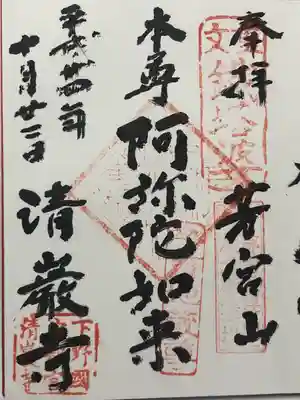 奉拝
芳宮山
本尊阿弥陀如来
平成廿四年
十月廿二日
清巌寺
下野國
清巌寺